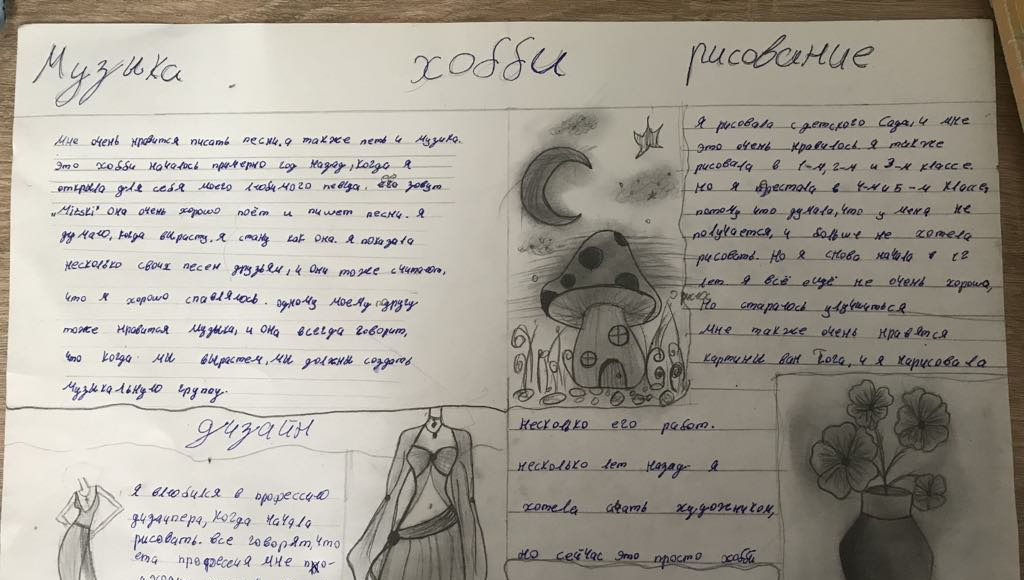 Музыка
хобби
рисование
мне очень нравится писать песни, а также петь и музыка.
это хобби началось примерно год назад, когда я
открыла для себя моего любимого певца. его зовут
„Mitski" она очень хорошо поёт и пишет песни. я
думаю, когда вырасту, я стану как она. я показала
несколько своих песен друзьям, и они тоже считают,
что я хорошо справляюсь. одному моему другу
тоже нравится музыка, и она всегда говорит,
что когда мы вырастем, мы должны создать
музыкальную группу.
Я рисовала с детского Сада, и мне
это очень нравилось. я также
рисовала в 1-м, 2-м и 3-м классе.
Но я перестала в 4-м и 5-м классе,
потому что думала, что у меня не
получается, и больше не хотела
рисовать. Но я снова начала в 12
лет. я всё ещё не очень хорошо,
Но стараюсь улучшиться
Мне также очень нравятся
картины ван Гога, и я нарисовала
несколько его работ.
несколько лет назад я
хотела стать художником,
но сейчас это просто хобби
дизайн
Я влюбился в профессию
дизайнера, когда начала
рисовать. все говорят, что
ета профессия мне по-